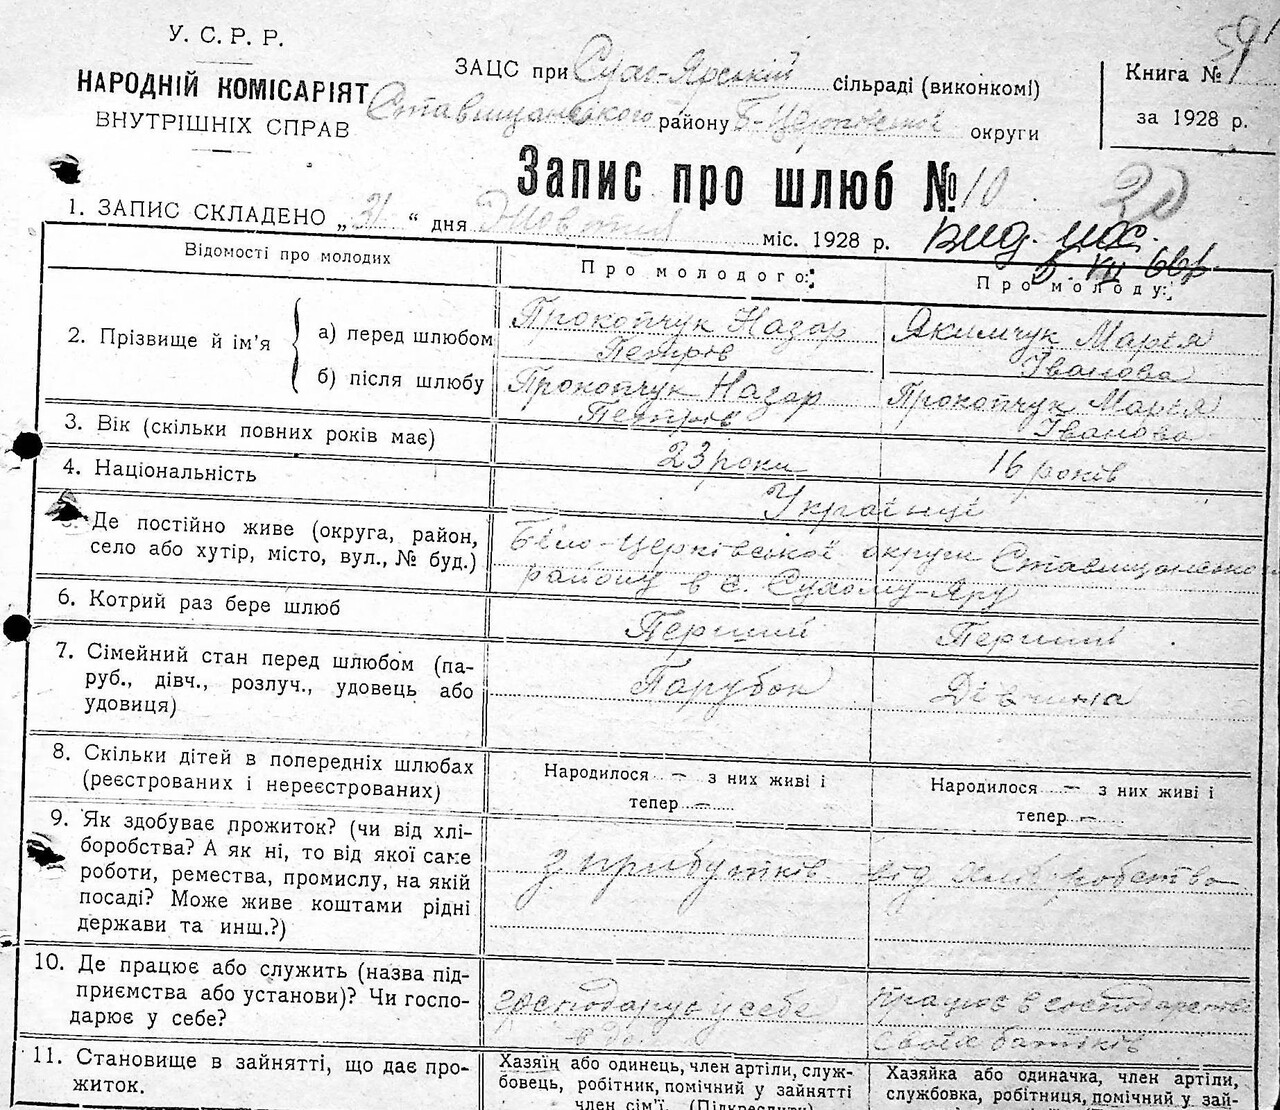 У. С. Р. Р.
НАРОДНІЙ КОМІСАРІЯТ
ВНУТРІШНІХ СПРАВ
ЗАЦС при Сухо-Ярській сільраді (виконкомі)
Ставищанського району Б-Церківської округи
Книга №
за 1928 р.
59
Запис про шлюб № 10
20
1. ЗАПИС СКЛАДЕНО „31“ дня Жовтня міс. 1928 р.
Вид.
Відомості про молодих
Про молодого:
Про молоду:
2. Прізвище й ім’я
а) перед шлюбом
Прокопчук Назар
Петрів
Якимчук Марія
Іванова
б) після шлюбу
Прокопчук Назар
Петрів
Прокопчук Марія
Іванова
3. Вік (скільки повних років має)
23 роки
16 років
4. Національність
Українці
Де постійно живе (округа, район,
село або хутір, місто, вул., № буд.)
Біло-Церківської округи Ставищанського
району в с. Сухому-Яру
6. Котрий раз бере шлюб
Перший
Перший
7. Сімейний стан перед шлюбом (па-
руб., дівч., розлуч., удовець або
удовиця)
Парубок
Дівчина
8. Скільки дітей в попередніх шлюбах
(реєстрованих і нереєстрованих)
Народилося — з них живі і
тепер —
Народилося — з них живі і
тепер —
9. Як здобуває прожиток? (чи від хлі-
боробства? А як ні, то від якої саме
роботи, ремества, промислу, на якій
посаді? Може живе коштами рідні
держави та инш.?)
з прибутків від хліборобства
10. Де працює або служить (назва під-
приємства або установи)? Чи госпо-
дарює у себе?
господарує у себе
працює в господарстві
своїх батьків
11. Становище в зайнятті, що дає про-
житок.
Хазяїн або одинець, член артіли, служ-
бовець, робітник, помічний у зайнятті
член сім’ї. (Підкреслити)
Хазяйка або одиначка, член артіли,
службовка, робітниця, помічний у зай-